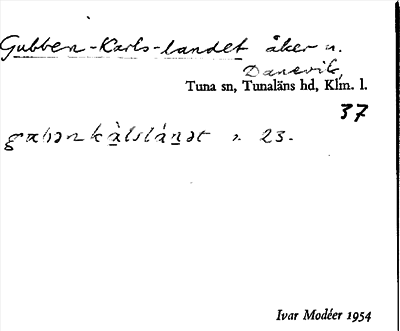 Gubben-Karls-landet åker n.
Danevik,
Tuna sn, Tunaläns hd, Klm. l.
37
23.
Ivar Modéer 1954